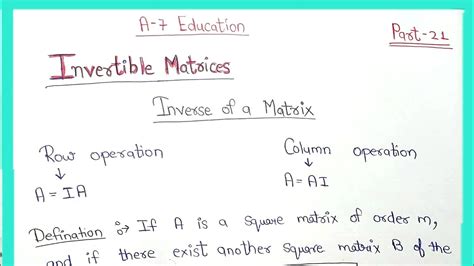 A-7 Education
Part-21
Invertible Matrices
Inverse of a Matrix
Row operation
Column operation
↓
↓
A = IA
A = AI
Defination :→ If A is a square matrix of order m,
and if there exist another square matrix B of the